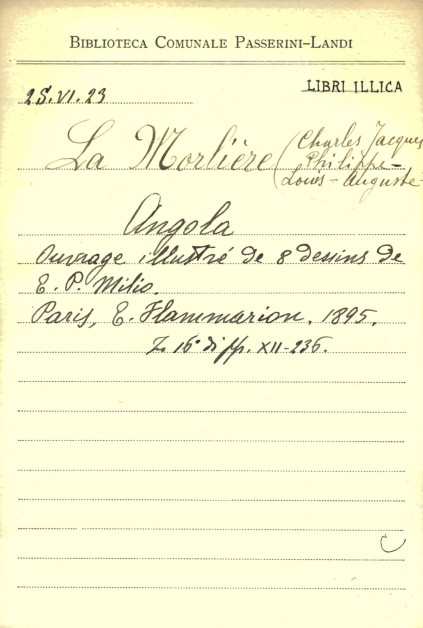 BIBLIOTECA COMUNALE PASSERINI-LANDI
LIBRI ILLICA
25.VI.23
La Morlière (Charles Jacques
Philippe-
Louis-Auguste-
Angola
Ouvrage illustré de 8 dessins de
E. P. Milio.
Paris, E. Flammarion. 1895.
16° di pp. XII-236.